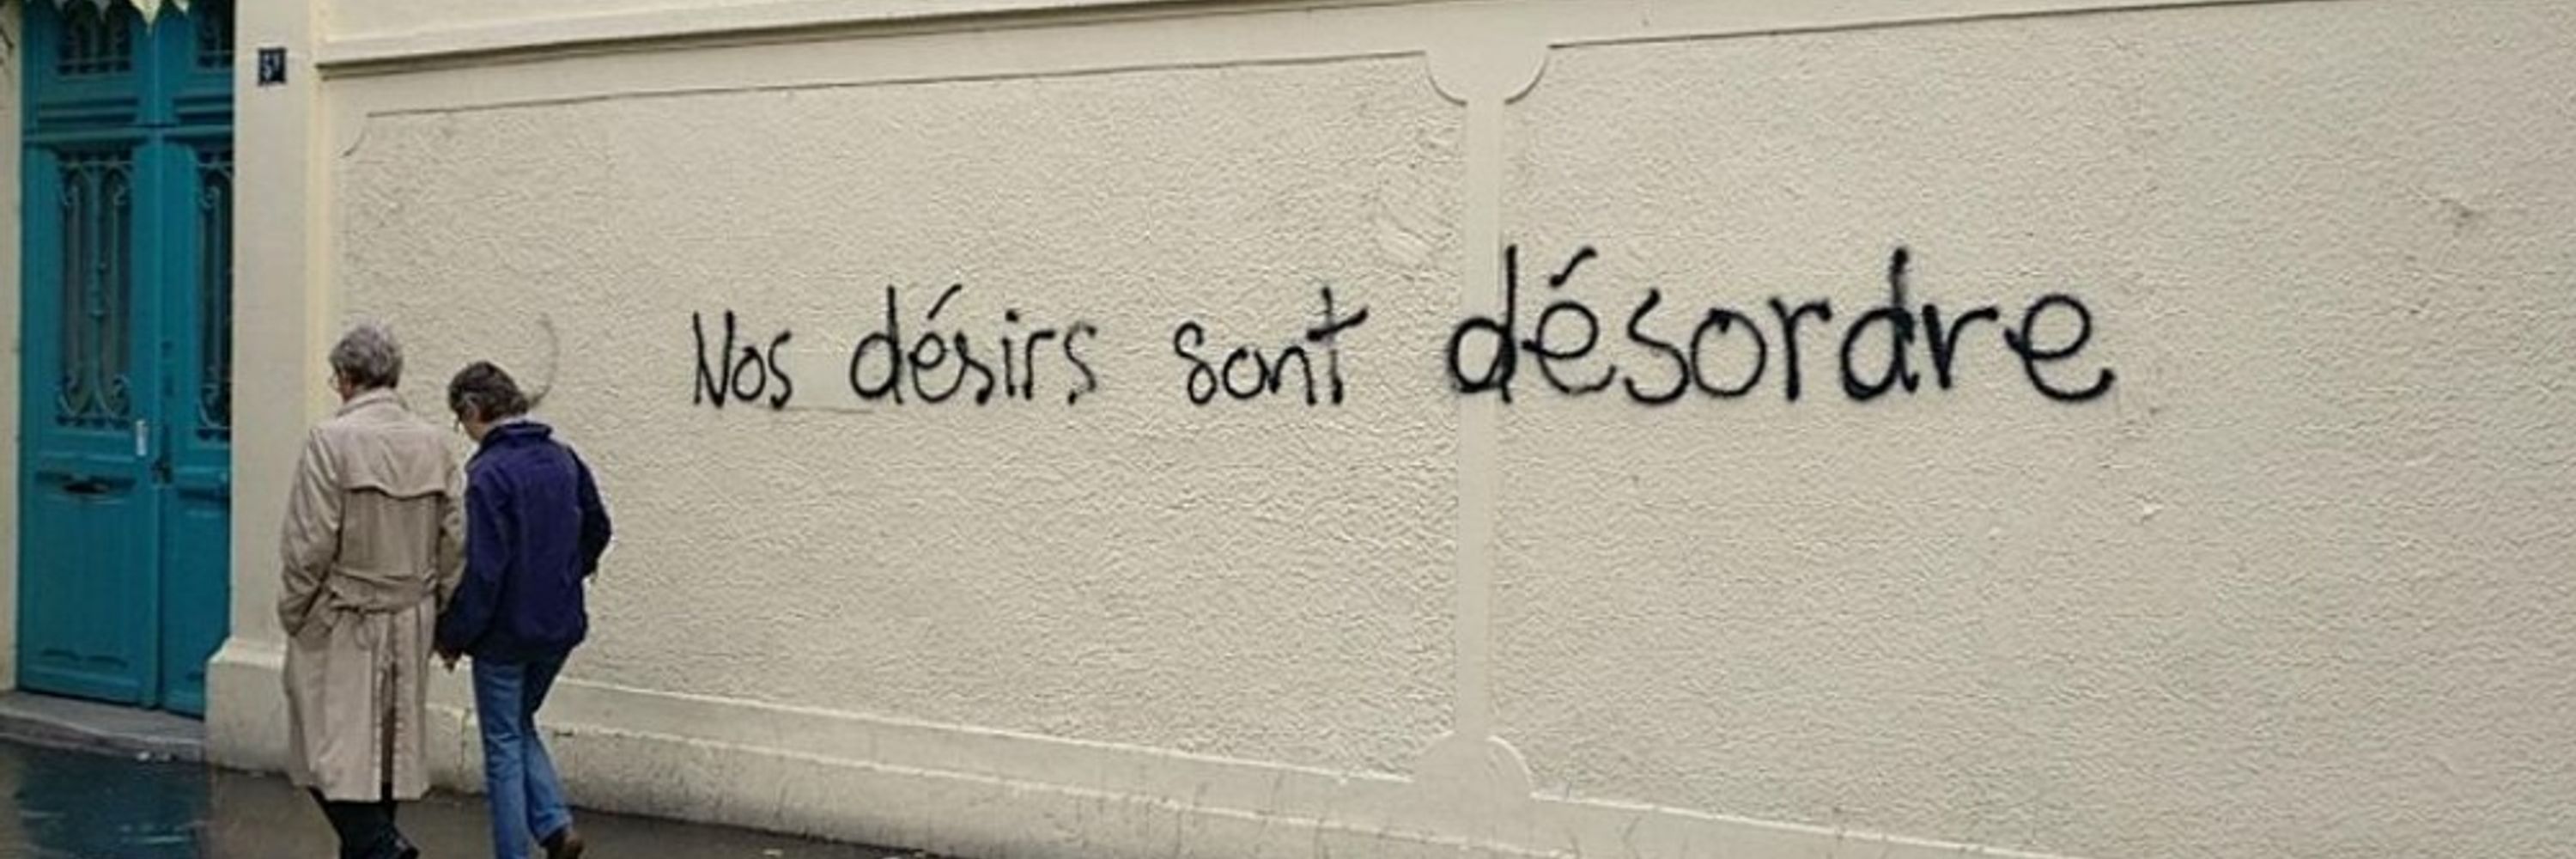 Nos désirs sont désordre